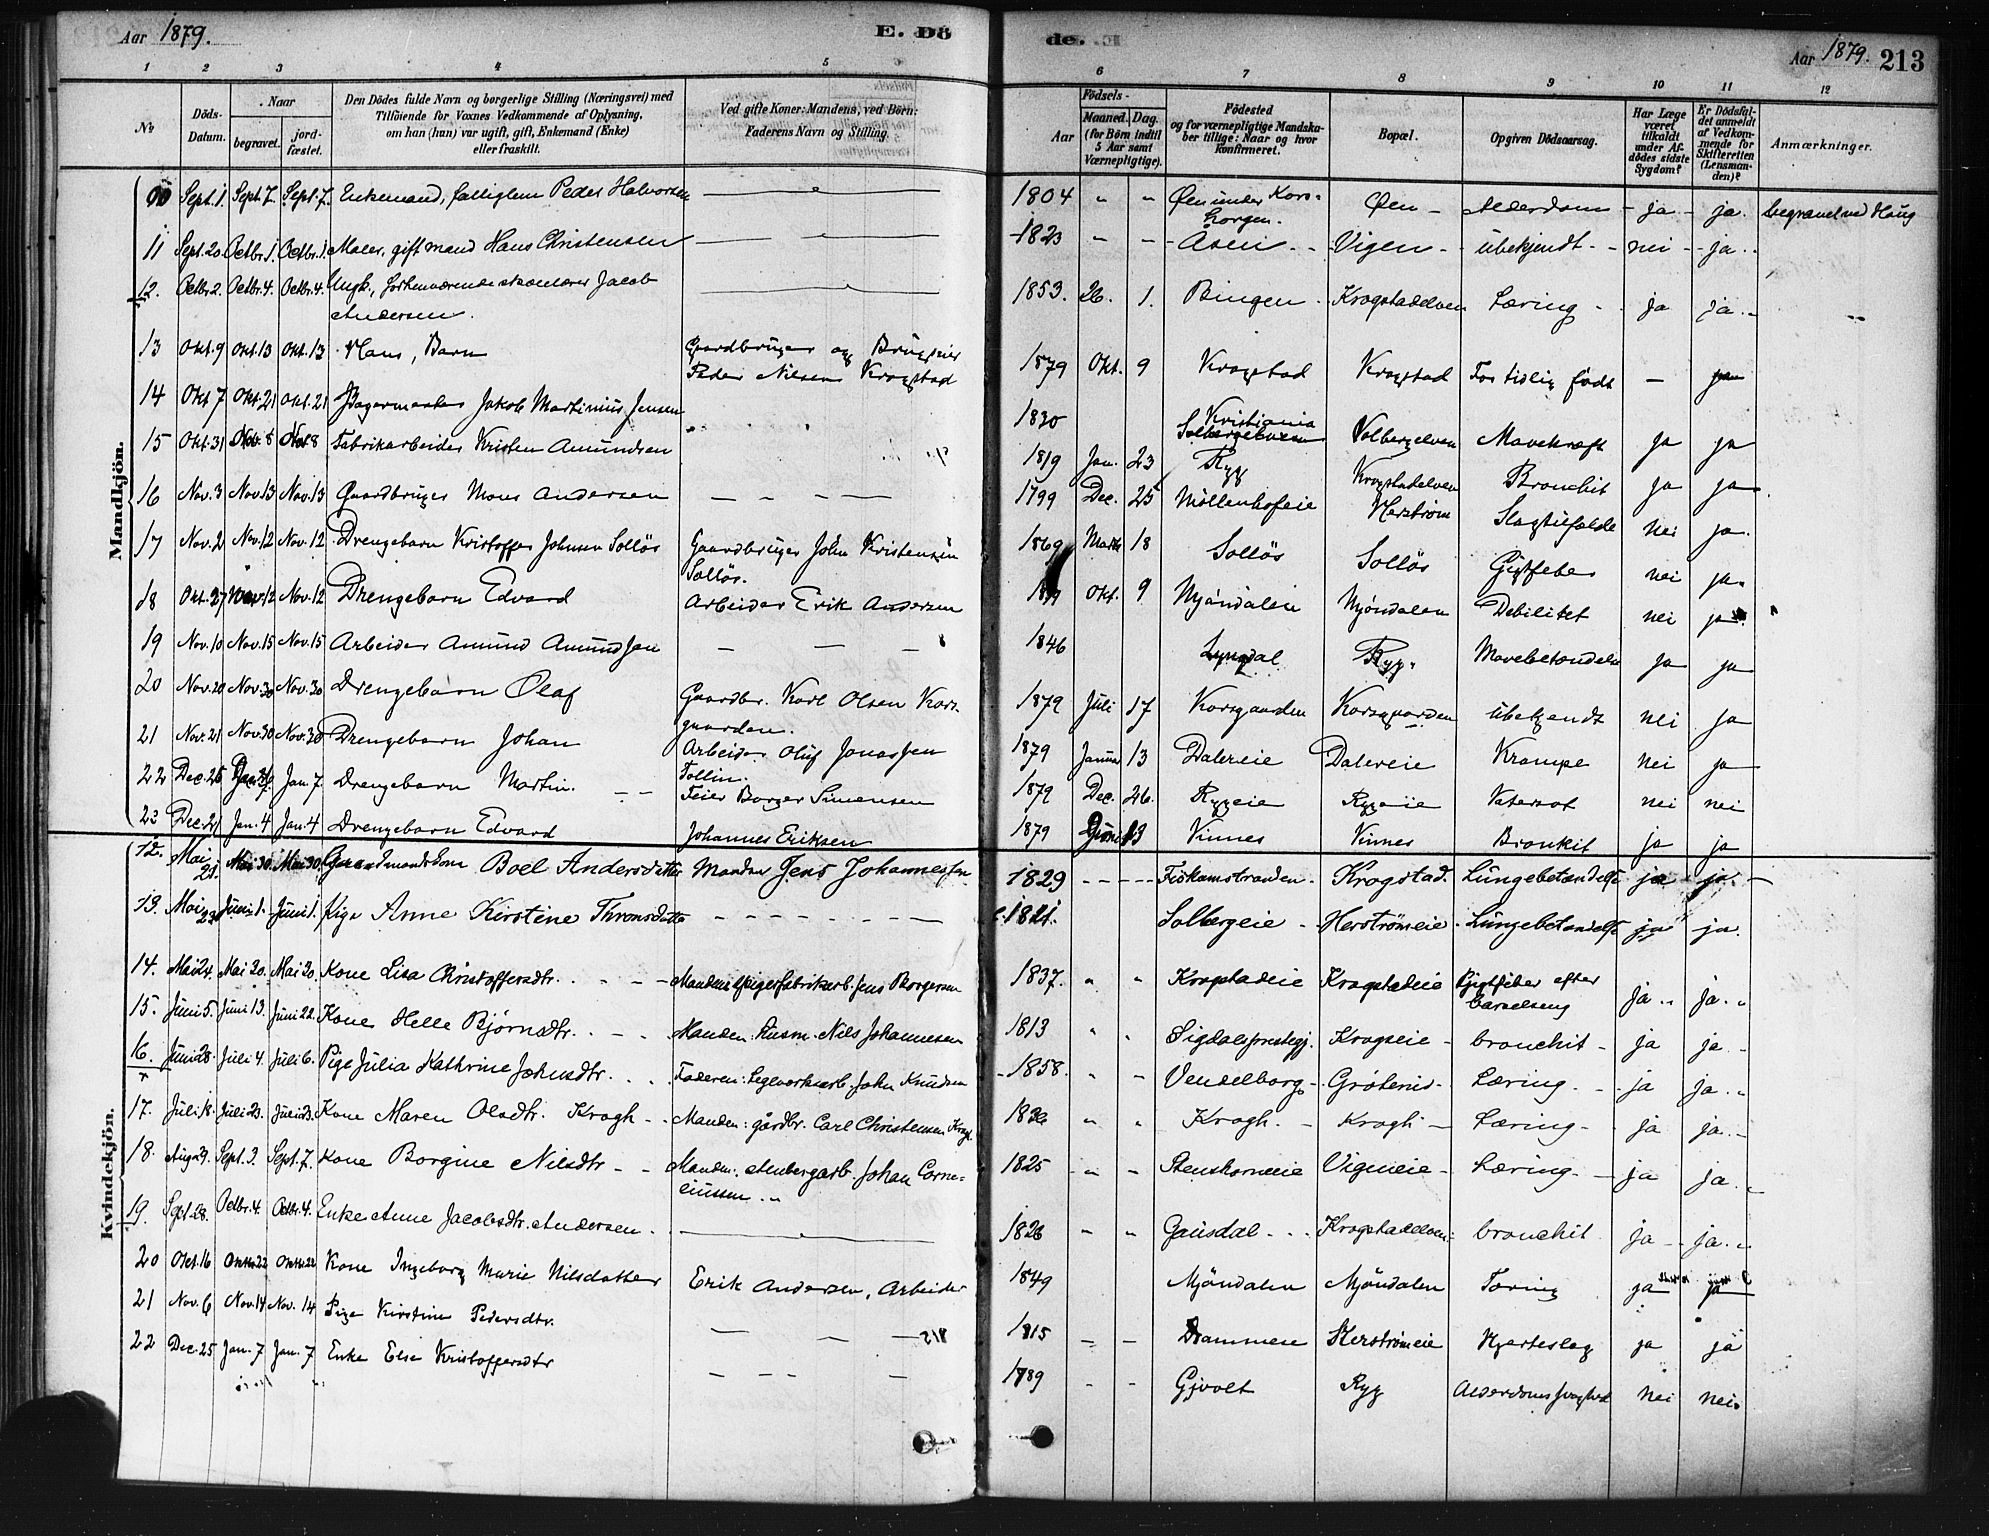 Aar 1879.
E. Dö
de.
Aar 1879. 213
1 2 3 4 5 6 7 8 9 10 11 12
№
Döds-Datum.
Naar
begravet. jord-fæstet.
Den Dödes fulde Navn og borgerlige Stilling (Næringsvei) med
Tilföiende for Voxnes Vedkommende af Oplysning,
om han (hun) var ugift, gift, Enkemand (Enke)
eller fraskilt.
Ved gifte Koner: Mandens, ved Börn:
Faderens Navn og Stilling.
Födsels-
Aar Maaned. Dag.
(for Börn indtil
5 Aar samt
Værnepligtige).
Födested
og for værnepligtige Mandska-
ber tillige: Naar og hvor
konfirmeret.
Bopæl.
Opgiven Dödsaarsag.
Har Læge
været
tilkaldt
under Af-
dödes sidste
Sygdom?
Er Dödsfal-
det anmeldt
af Vedkom-
mende for
Skifteretten
(Lensman-
den)?
Anmærkninger.
Mandkjön.
10 Sept. 1. Sept. 7. Sept. 7. Enkemand, fattiglem Peder Halvorsen 1804 " " Øen under Kors-
horgen. Øen Alderdom ja ja. begravet ved Haug
11 Sept. 20. Octbr. 1. Octbr. 1. Maler, gift mand Hans Christensen 1823 Aseii Vigen ubekjendt nei ja
12. Octbr. 2. Octbr. 4. Octbr. 4. Ungk., forhenværende Jacob
Andersen. 1853. 26. 1. Bingen Krogstadelven Tæring ja ja
13 Okt. 9 Okt. 13 Okt. 13 Hans, Barn Gaardbruger og Brugseier
Peder Nilsen Krogstad 1879 Okt. 9 Krogstad Krogstad For tidlig født — ja
14 Okt 7 Okt. 21 Okt. 21 Bagermester Jakob Martinius Jensen 1830 Kristiania Solbergelven Mavekræft ja ja
15 Okt. 31 Nov. 8 Nov 8 Fabrikarbeider Kristen Amundsen 1819 Jan. 23 Ryg Krogstadelven Bronchit ja ja
16 Nov. 3 Nov. 13 Nov. 13 Gaardbruger Mons Andersen 1799 Dec. 25 Möllenhofeie Herström Slagtilfælde nei ja
17 Nov. 2 Nov. 12 Nov. 12 Drengebarn Kristoffer Johnsen Solløs Gaardbruger John Kristensen
Solløs. 1869 Marts 18 Solløs Solløs Gigtfeber nei ja
18 Okt. 27 Nov. 12 Nov. 12 Drengebarn Edvard Arbeider Erik Andersen 1879 Okt. 9 Mjöndalen Mjöndalen Debilitet nei ja
19 Nov. 10 Nov. 15 Nov. 15 Arbeider Amund Amundsen 1846 Lyngdal Ryg Mavebetændelse ja ja
20 Nov. 20 Nov. 30 Nov. 30 Drengebarn Olaf Gaardbr. Karl Olsen Kors-
gaarden. 1879 Juli 17 Korsgaarden Korsgaarden ubekjendt nei ja
21 Nov. 21 Nov. 30 Nov. 30 Drengebarn Johan Arbeider Oluf Jonassen
Tollin. 1879 Januar 13 Dalereie Dalereie Krampe nei ja
22 Dec. 26 Jan. 7 Jan. 7 Drengebarn Martin. Feier Borger Simensen 1879 Dec. 26. Ryggeie Ryggeie nei nei
23 Dec. 21 Jan. 4 Jan. 4 Drengebarn Edvard Johannes Eriksen 1879 Juni 13 Vinnes Vinnes Bronkit ja ja
Kvindekjön.
12. Mai 21. Mai 30. Mai 30. Gaardmandskone Boel Andersdatter Manden Jens Johannessen 1829 Fiskumstranden Krogstad. Lungebetændelse ja ja
13. Mai 23 Juni 1. Juni 1. Pige Anne Kirstine Thronsdatter 1821. Solbergeie Herstrømeie Lungebetændelse ja ja.
14. Mai 24. Mai 20. Mai 20. Kone Lisa Christoffersdtr. Manden Spigerfabrikarb. Jens Borgersen 1837. " " Krogstadeie Krogstadeie Gigtfeber efter
barselseng ja ja.
15. Juni 5. Juni 13. Juni 22. Kone Helle Bjørnsdtr. Manden: Husm. Nils Johannesen 1813 Sigdals prestegj. Krogseie bronchit ja ja
16. Juni 28. Juli 4. Juli 6. Pige Julia Kathrine Johnsdtr. Faderen: Teglværksarb. John Knudsen 1858. Vendelborg Tæring ja ja
17. Juli 18. Juli 23. Juli 23. Kone Maren Olsdtr. Krogh Manden: gårdbr. Carl Christensen Krogh 1836 Krogh Krogh Tæring ja ja
18. Aug 29. Sept. 3. Sept. 7. Kone Borgine Nilsdtr Manden: Johan Corne-
liussen 1825 Vigneeie Tæring ja ja
19. Sept. 28. Octbr. 4. Octbr. 4. Enke Anne Jacobsdtr. Andersen 1826 Gausdal Krogstadelven bronchit ja ja
20 Okt. 16 Oktbr 22 Oktbr 22 Kone Ingeborg Marie Nilsdatter Erik Andersen, Arbeider 1849 Mjöndalen Mjöndalen Tæring ja ja
21 Nov. 6 Nov. 14 Nov. 14 Pige Kirstine Pedersdtr. 1815 Drammen Herstrømeie Hjerteslag ja ja
22 Dec. 25 Jan. 7 Jan. 7 Enke Else Kristoffersdtr 1789 Gjvolt Ryg Alderdomssvaghed nei nei